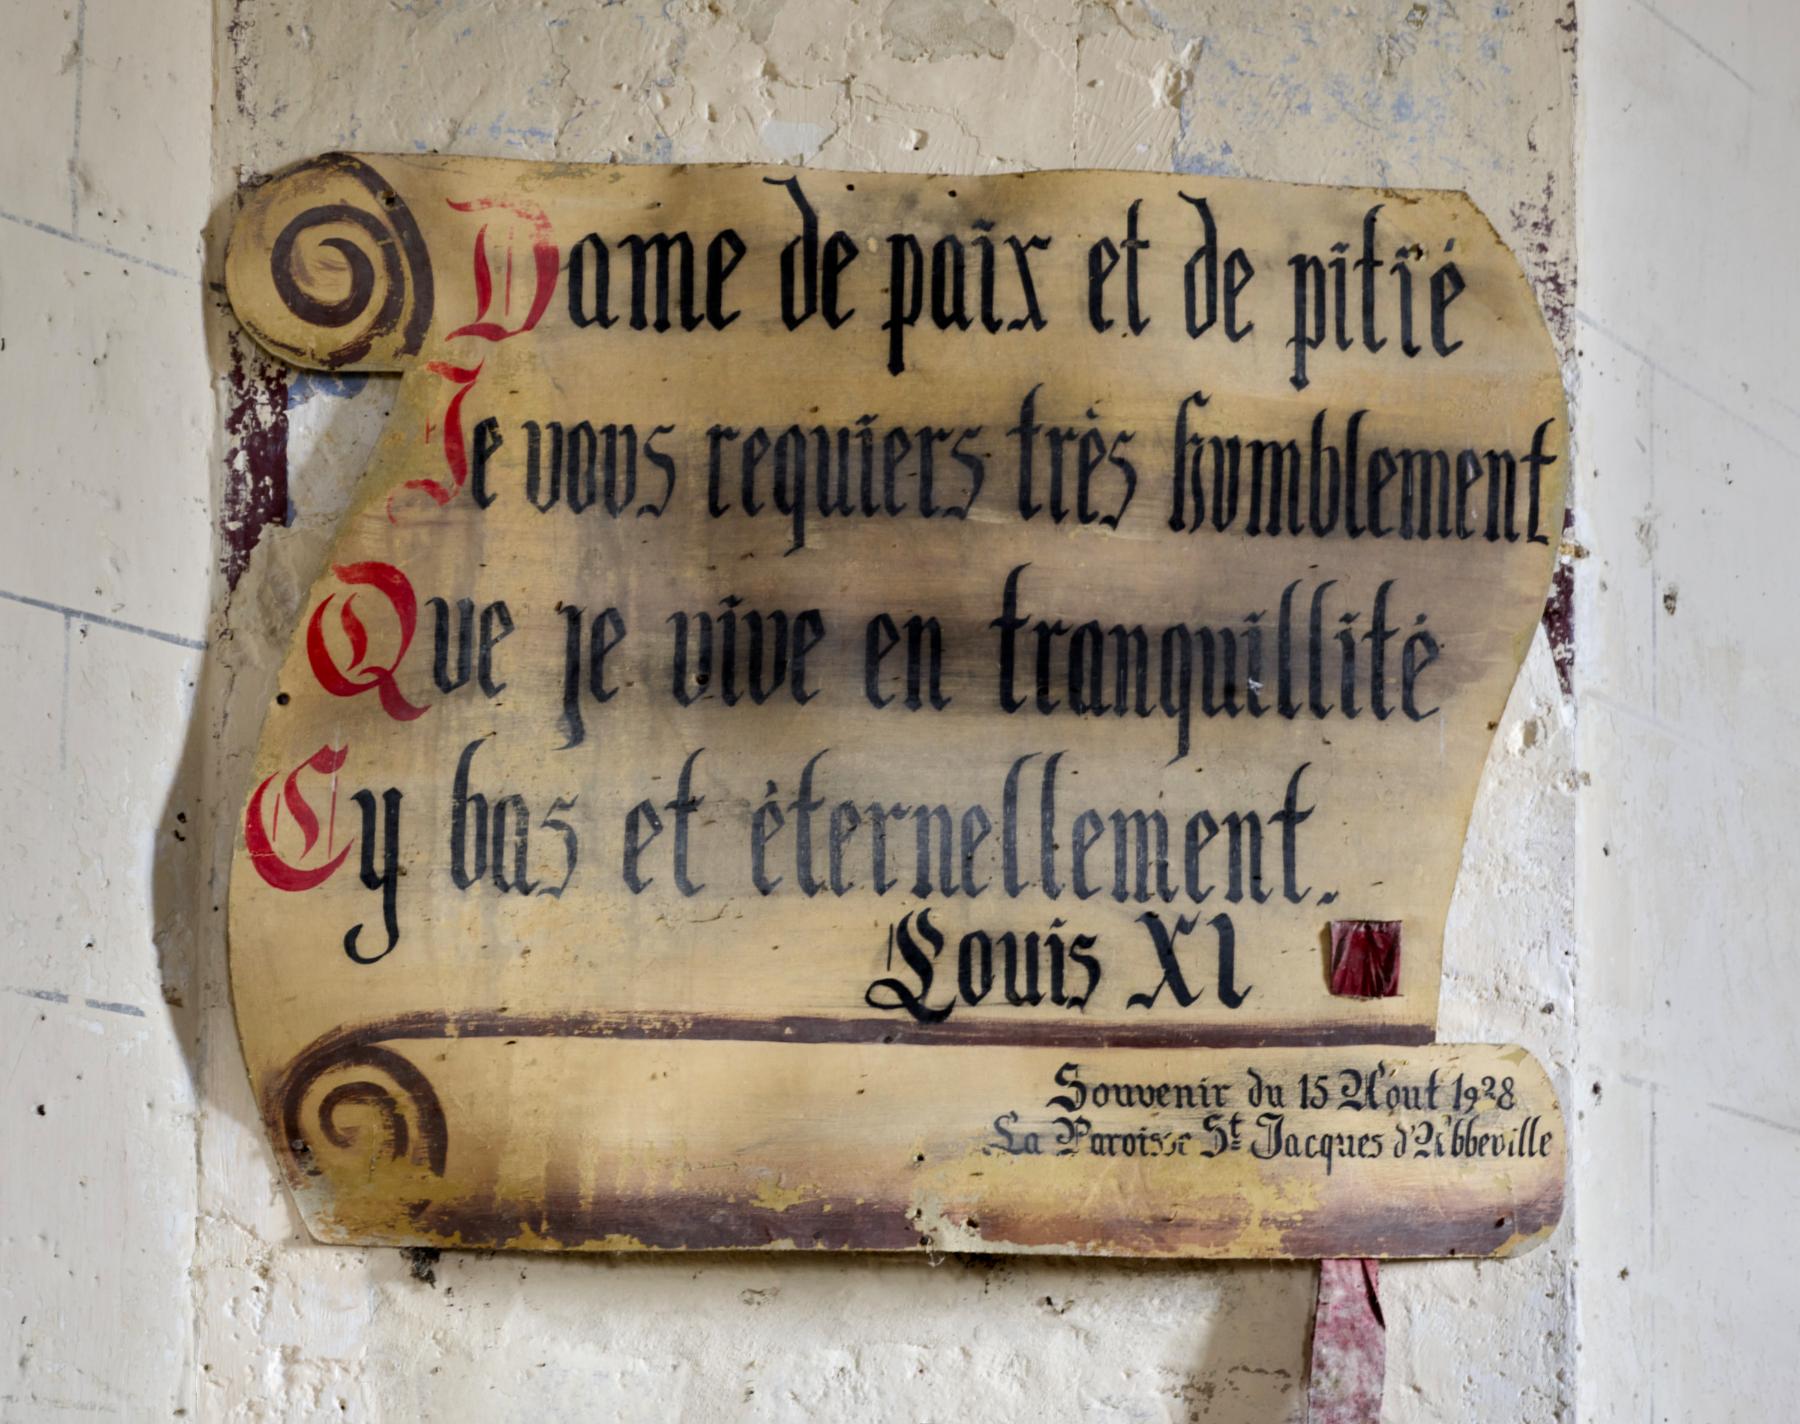 Dame de paix et de pitié
Je vous requiers très humblement
Que je vive en tranquillité
Cy bas et éternellement.
Louis XI
Souvenir du 15 Aout 1928
La Paroisse St Jacques d'Abbeville